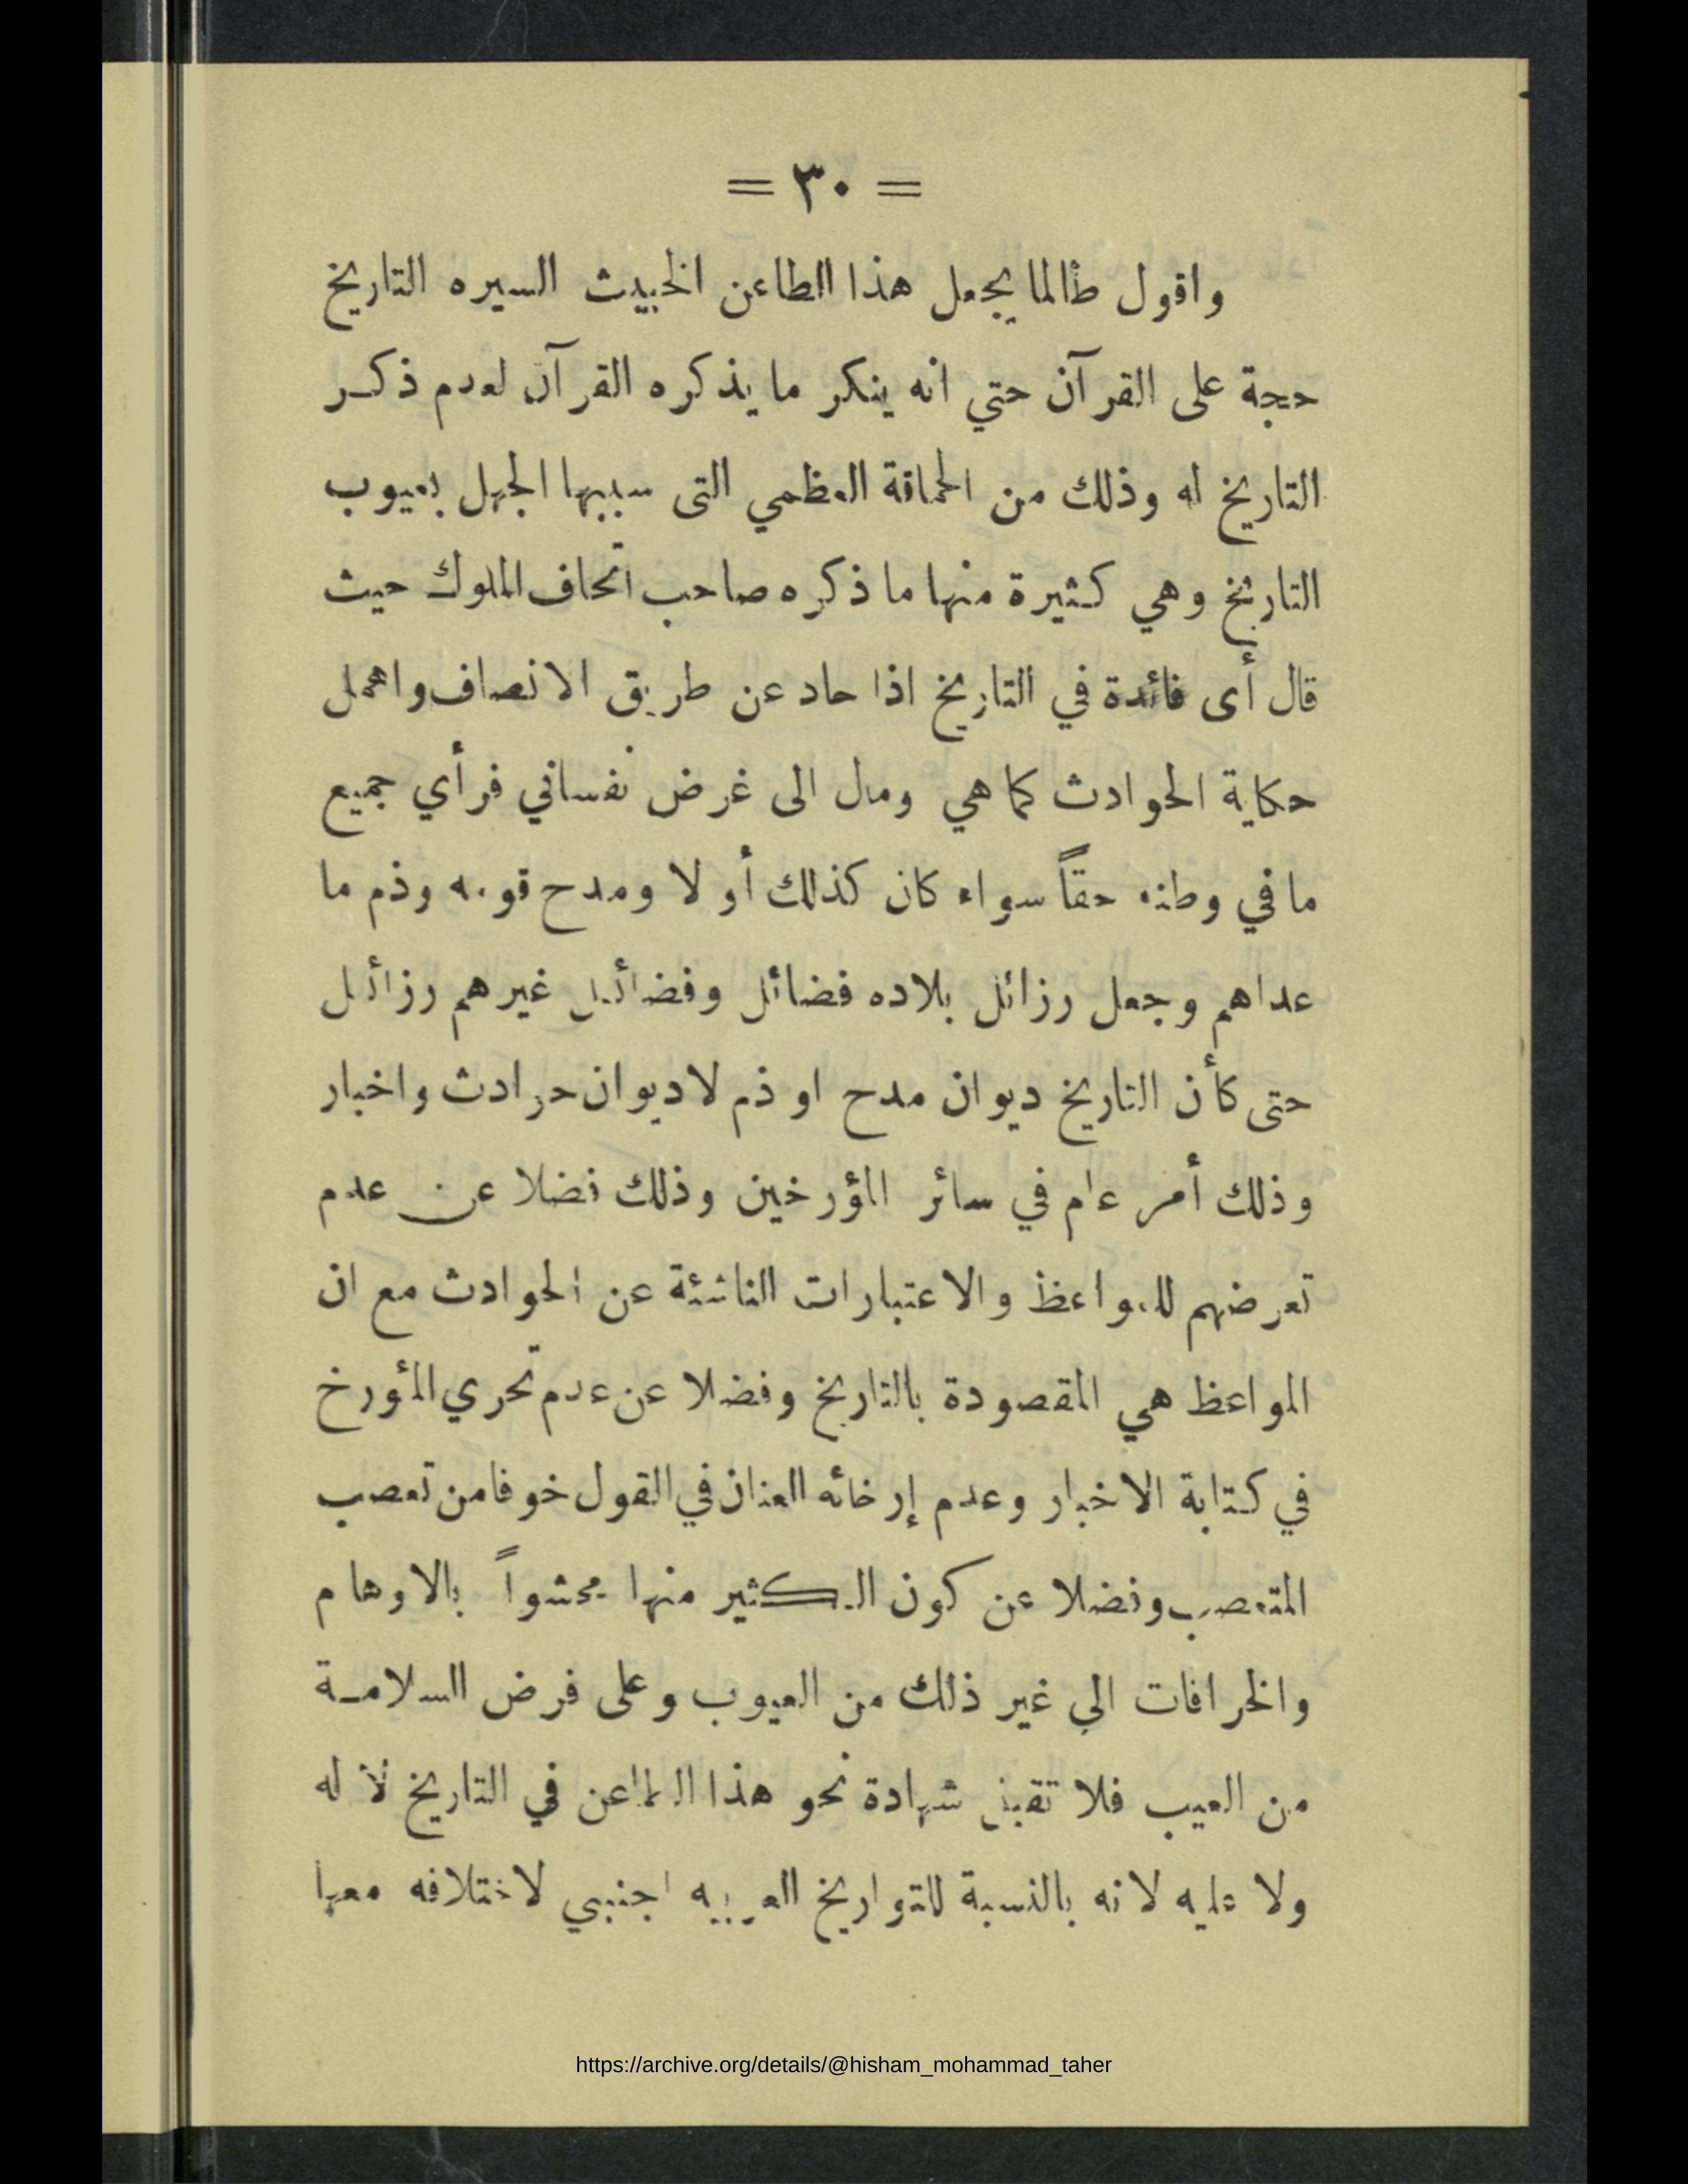 = ٣٠ =
واقول طالما يجعل هذا الطاعن الخبيث السيره التاريخ
حجة على القرآن حتي انه ينكر ما يذكره القرآن لعدم ذكر
التاريخ له وذلك من الحماقة العظمي التى سببها الجهل بعيوب
التاريخ وهي كثيرة منها ما ذكره صاحب اتحاف الملوك حيث
قال أى فائدة في التاريخ اذا حاد عن طريق الانصاف واهمل
حكاية الحوادث كما هي ومال الى غرض نفساني فرأي جميع
ما في وطنه حقاً سواء كان كذلك أو لا ومدح قومه وذم ما
عداهم وجعل رزائل بلاده فضائل وفضائل غيرهم رزائل
حتى كأن التاريخ ديوان مدح او ذم لا ديوان حوادث واخبار
وذلك أمر عام في سائر المؤرخين وذلك فضلا عن عدم
تعرضهم للمواعظ والاعتبارات الناشئة عن الحوادث مع ان
المواعظ هي المقصودة بالتاريخ وفضلا عن عدم تحري المؤرخ
في كتابة الاخبار وعدم إرخائه العنان في القول خوفا من تعصب
المتعصب وفضلا عن كون الكثير منها محشواً بالاوهام
والخرافات الي غير ذلك من العيوب وعلى فرض السلامة
من العيب فلا تقبل شهادة نحو هذا الطاعن في التاريخ لا له
ولا عليه لانه بالنسبة للتواريخ العربيه اجنبي لاختلافه معها
https://archive.org/details/@hisham_mohammad_taher